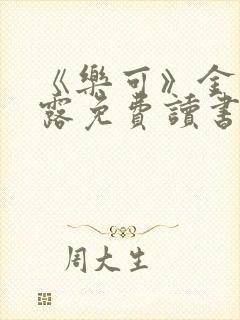 《樂可》金
露免費讀書
周大生